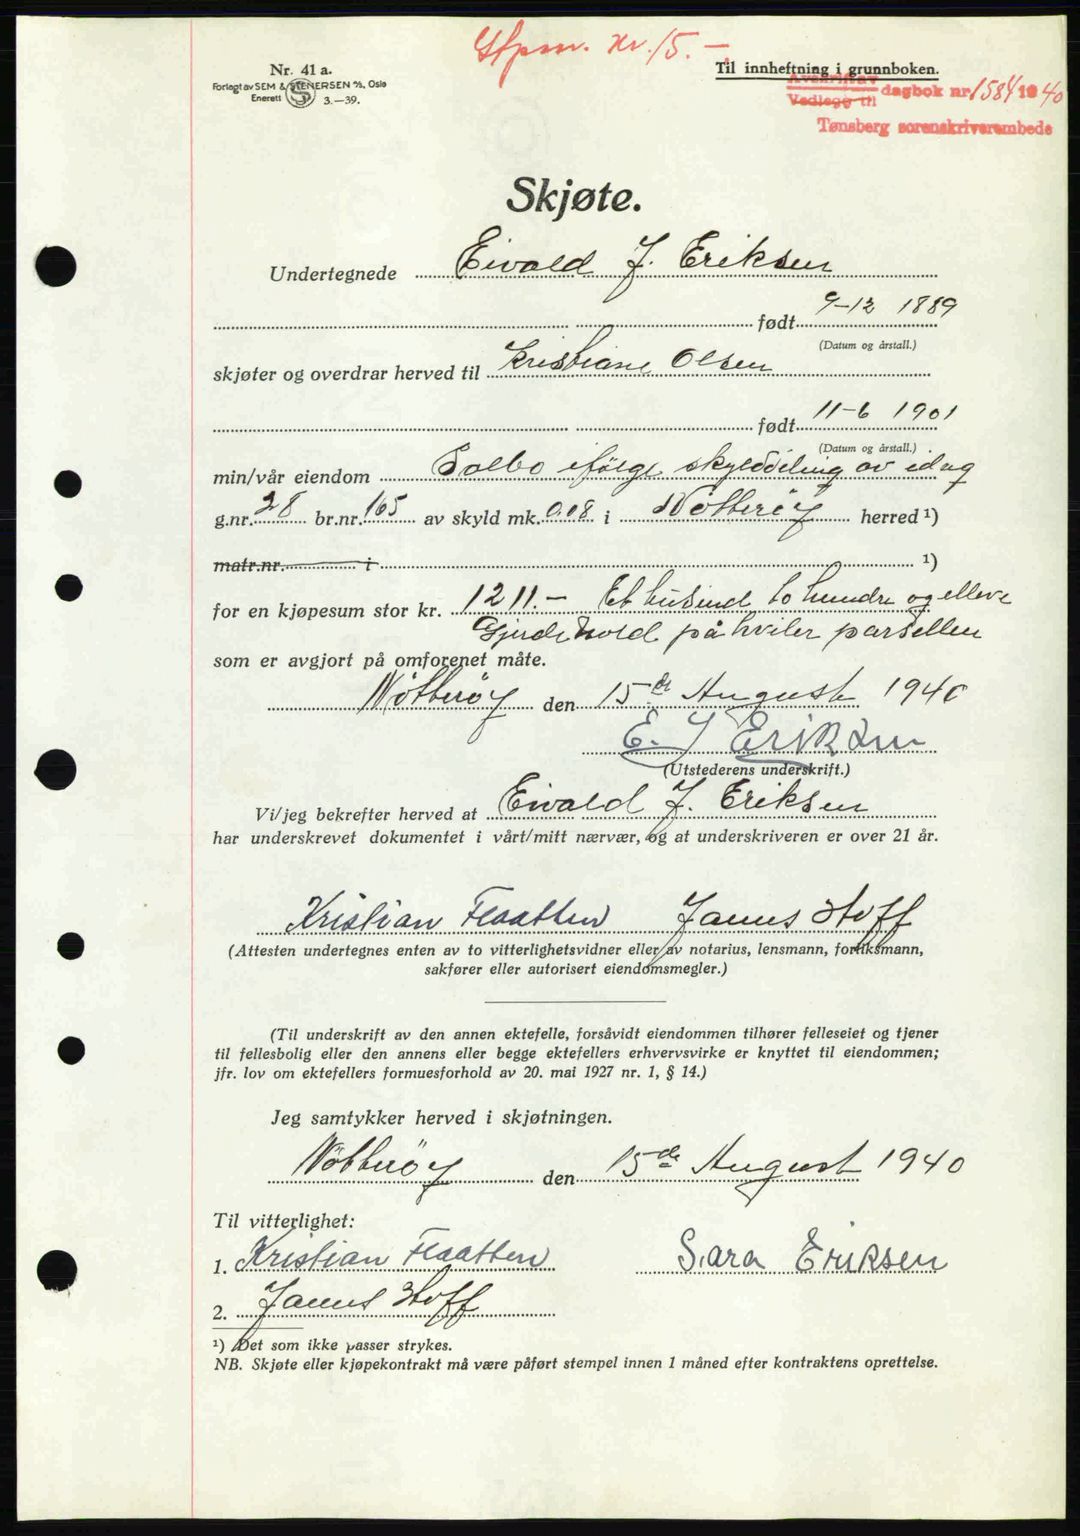 Stpm. kr. 15.-
Nr. 41 a.
Til innheftning i grunnboken.
Forlagt av SEM & STENERSEN A/S, Oslo
Enerett 3.—39.
Avskrift av
Vedlegg til dagbok nr 1584 1940
Tønsberg sorenskriverembede
Skjøte.
Undertegnede Eivald J. Eriksen
født 9-12 1889
(Datum og årstall.)
skjøter og overdrar herved til Kristiane Olsen
født 11-6 1901
(Datum og årstall.)
min/vår eiendom Solbo ifølge skylddeling av idag
g.nr. 28 br.nr. 165 av skyld mk. 0.08 i Nøtterøy herred ¹)
matr.nr. i ¹)
for en kjøpesum stor kr. 1211.- Et tusind to hundre og elleve
Gjerdehold påhviler parsellen
som er avgjort på omforenet måte.
Nøtterøy den 15de August 1940
E. J Eriksen
(Utstederens underskrift.)
Vi/jeg bekrefter herved at Eivald J. Eriksen
har underskrevet dokumentet i vårt/mitt nærvær, og at underskriveren er over 21 år.
Kristian Flaatten Janus Hoff
(Attesten undertegnes enten av to vitterlighetsvidner eller av notarius, lensmann, forliksmann,
sakfører eller autorisert eiendomsmegler.)
(Til underskrift av den annen ektefelle, forsåvidt eiendommen tilhører felleseiet og tjener
til fellesbolig eller den annens eller begge ektefellers erhvervsvirke er knyttet til eiendommen;
jfr. lov om ektefellers formuesforhold av 20. mai 1927 nr. 1, § 14.)
Jeg samtykker herved i skjøtningen.
Nøtterøy den 15de August 1940
Til vitterlighet:
1. Kristian Flaatten Sara Eriksen
2. Janus Hoff
¹) Det som ikke passer strykes.
NB. Skjøte eller kjøpekontrakt må være påført stempel innen 1 måned efter kontraktens oprettelse.